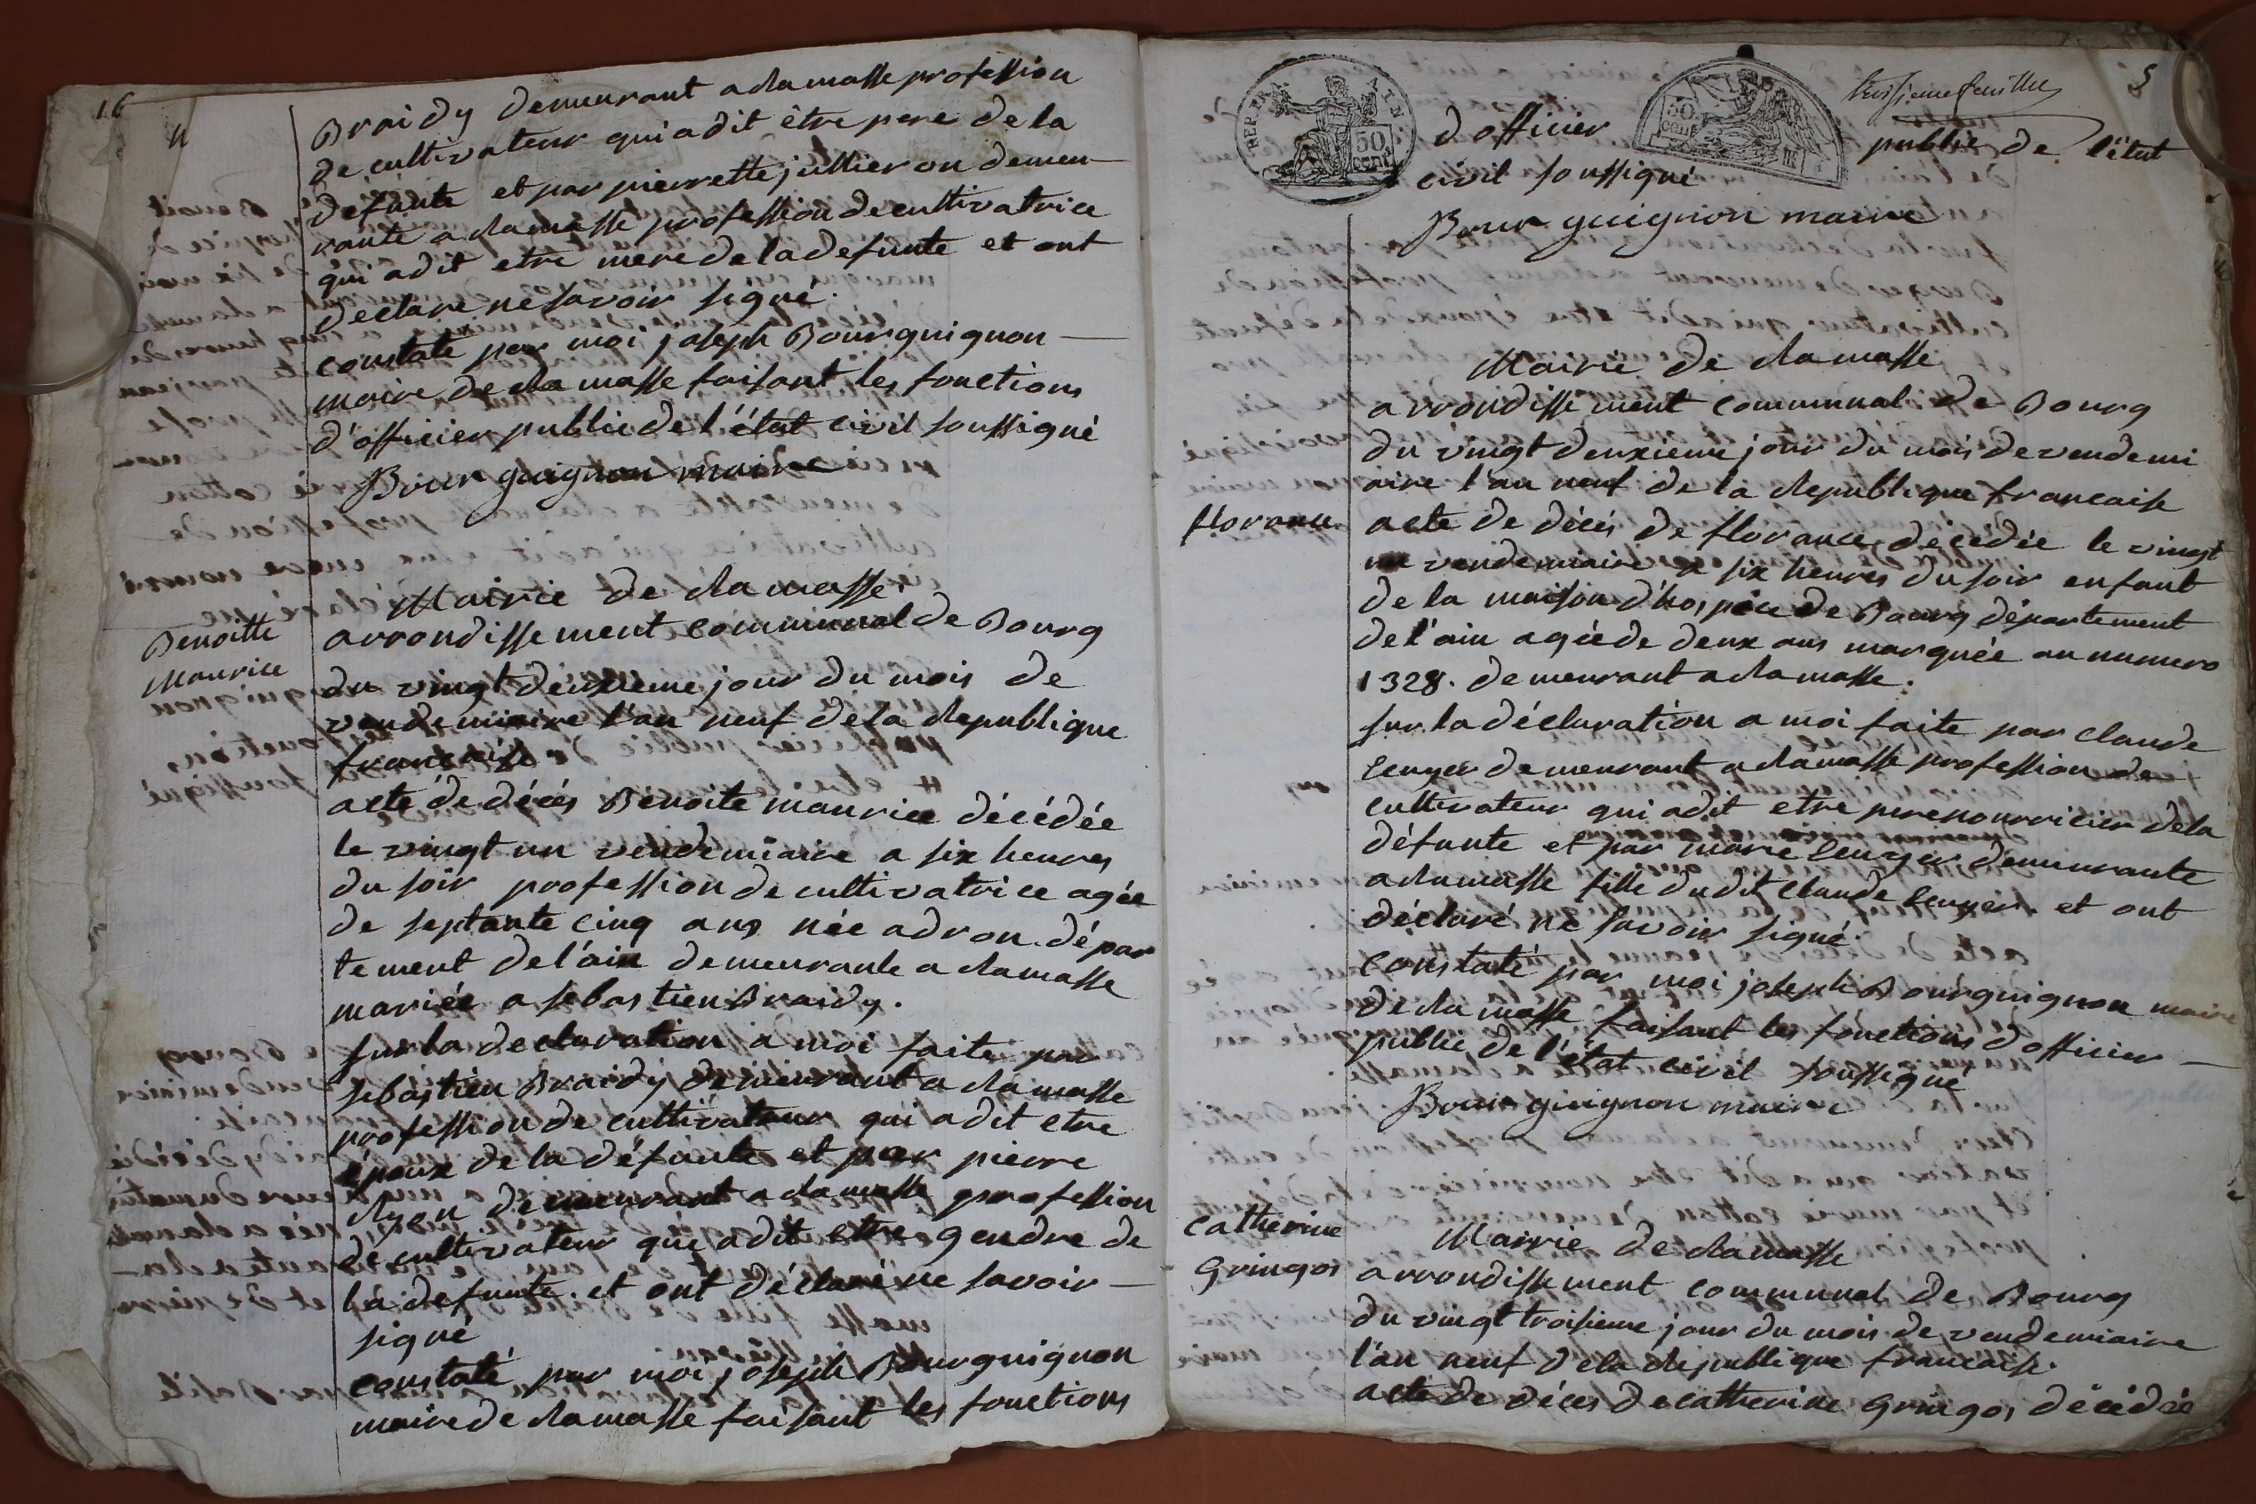 16
4
Braidy demeurant a Ramasse profession
de cultivateur qui a dit être pere de la
defunte et par pierrette jullieron demeu-
rante a Ramasse profession de cultivatrice
qui a dit etre mere de la defunte et ont
declare ne savoir signé.
constaté par moi joseph Bourguignon
maire de Ramasse faisant les fonctions
d'officier public de l'état civil soussigné
Bourguignon maire
Benoitte
Maurice
Mairie de Ramasse
arrondissement communal de Bourg
du vingt deuxieme jour du mois de
vendemiaire l'an neuf de la Republique
francaise.
acte de décés Benoite maurice décédée
le vingt un vendemiaire a six heures
du soir profession de cultivatrice agée
de septante cinq ans née a dron dépar
tement de l'ain demeurante a Ramasse
mariée a sebastien Braidy.
sur la declaration a moi faite par
sebastien Braidy demeurant a Ramasse
profession de cultivateur qui a dit etre
époux de la défunte et par pierre
demeurant a Ramasse profession
de cultivateur qui a dit etre gendre de
la defunte. et ont déclaré ne savoir
signé
constaté par moi joseph Bourguignon
maire de Ramasse faisant les fonctions
5
troisieme feuillet
REP. FRA. 50 cent.
50 cent.
d officier public de l'état
civil soussigné
Bourguignon maire
florance
Mairie de Ramasse
arrondissement communal de Bourg
du vingt deuxieme jour du mois de vendemi
aire l'an neuf de la Republique francaise
acte de décés de florance décédée le vingt
un vendemiaire a six heures du soir enfant
de la maison d'hospice de Bourg département
de l'ain agée de deux ans marquée au numero
1328. demeurant a Ramasse.
sur la déclaration a moi faite par claude
demeurant a Ramasse profession de
cultivateur qui a dit etre pere nourricier de la
défunte et par marie demeurante
a Ramasse fille dudit claude et ont
déclaré ne savoir signé.
constaté par moi joseph Bourguignon maire
de Ramasse faisant les fonctions d officier
public de l'état civil soussigné
Bourguignon maire
catherine
Gringos
Mairie de Ramasse
arrondissement communal de Bourg
du vingt troisieme jour du mois de vendemiaire
l'an neuf de la Republique francaise.
acte de décés de catherine Gringos décédée